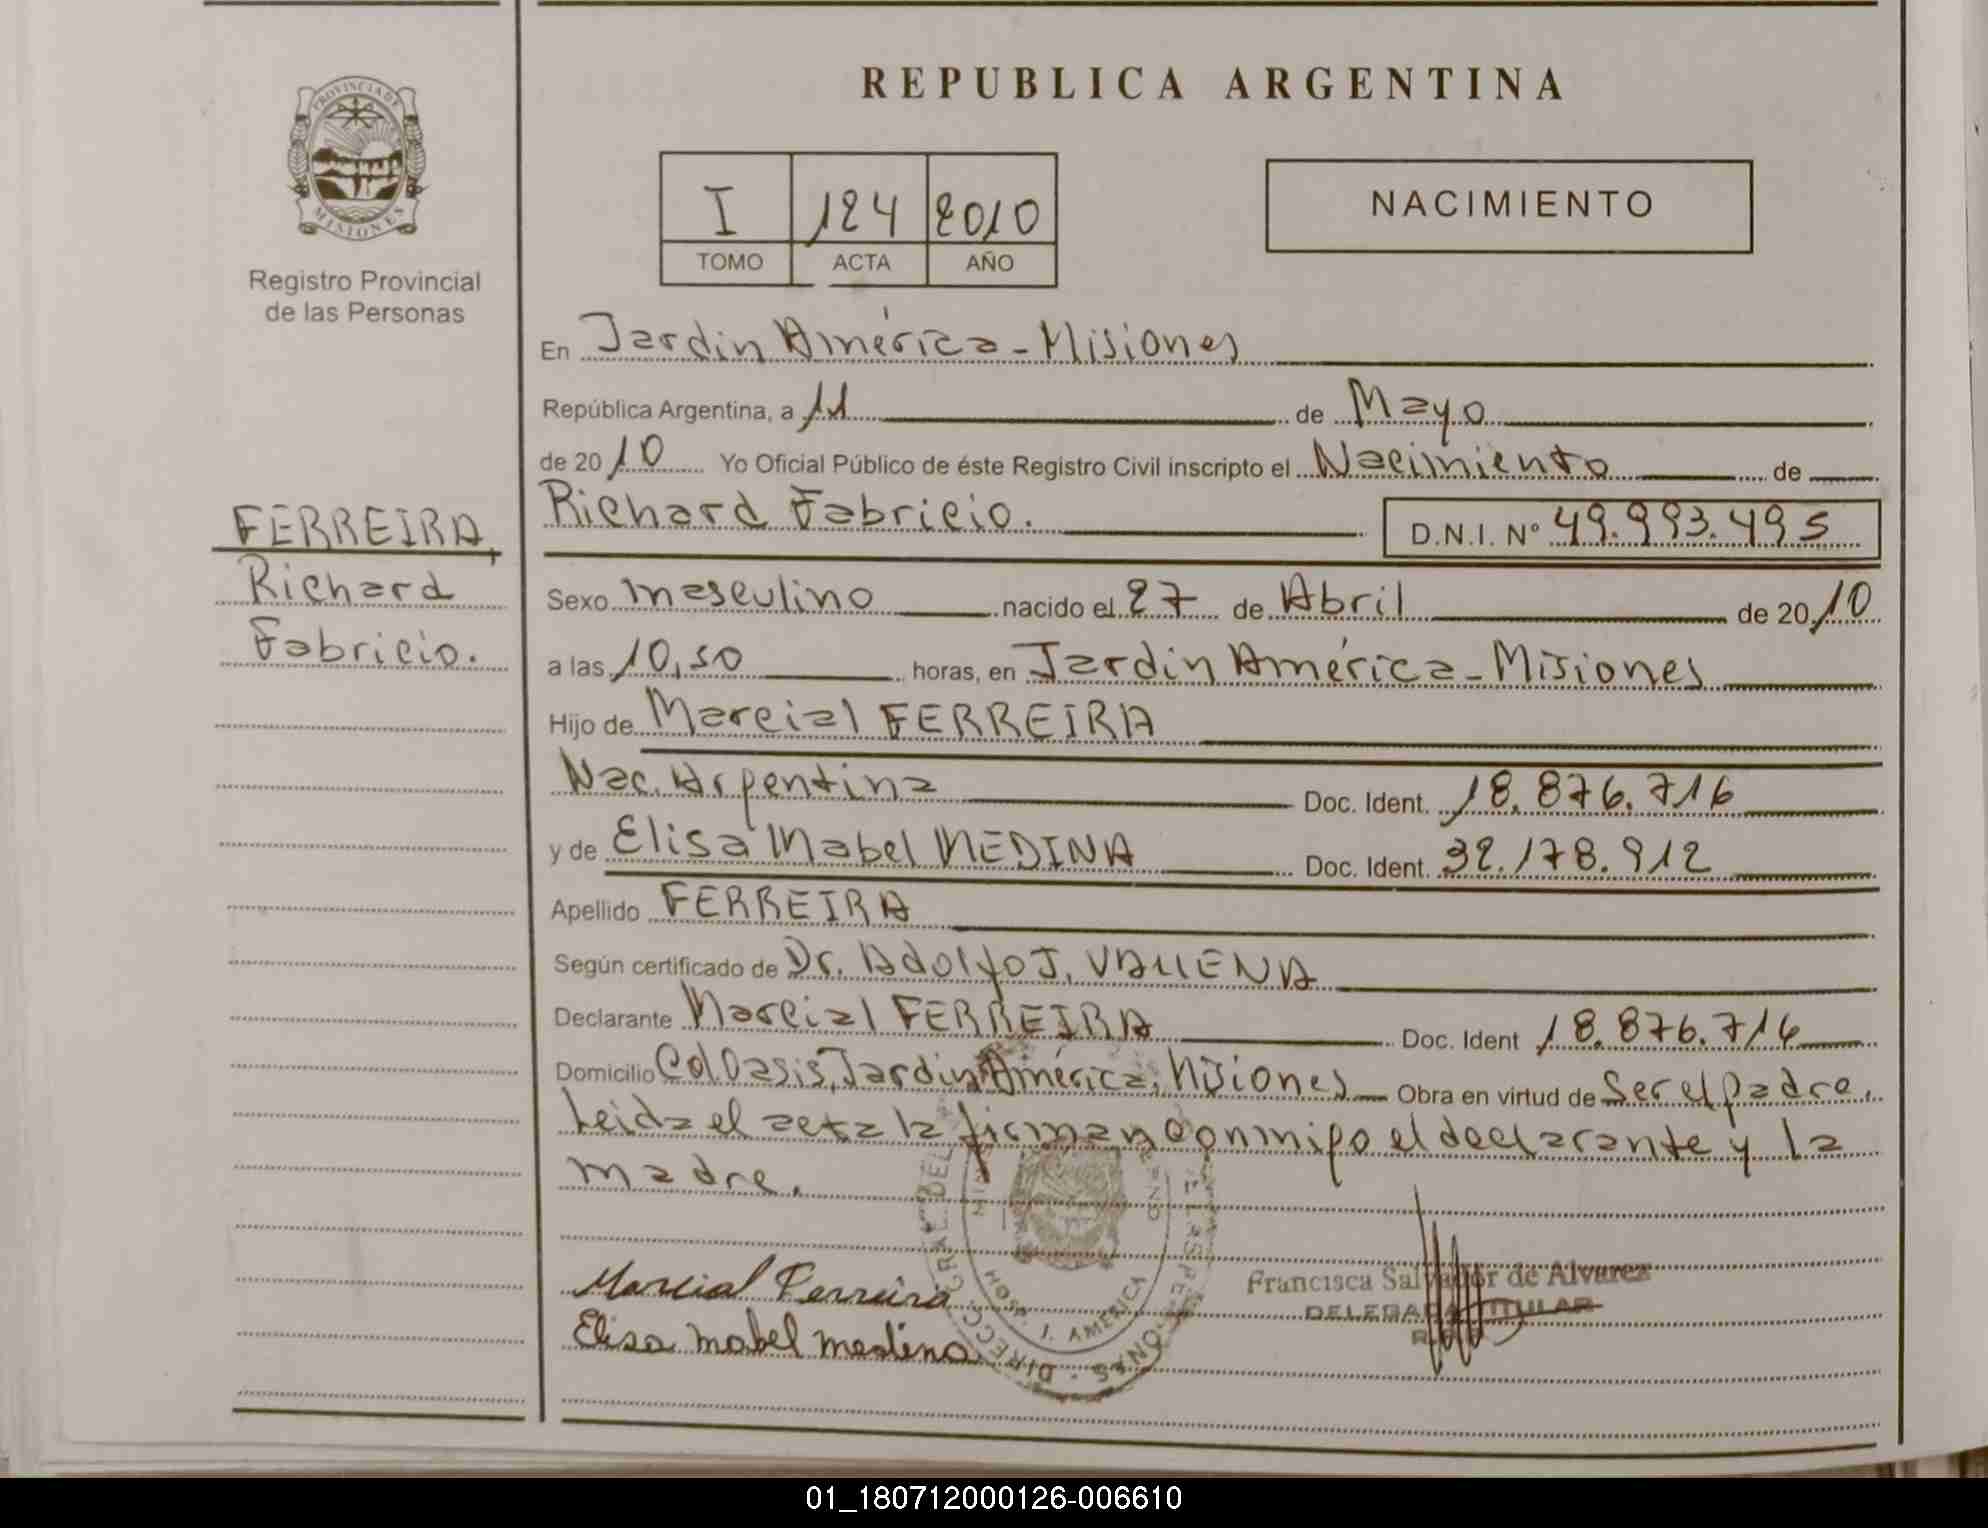 PROVINCIA DE
MISIONES
Registro Provincial
de las Personas
FERREIRA,
Richard
Fabricio.
REPUBLICA ARGENTINA
I 124 2010
TOMO ACTA AÑO
NACIMIENTO
En Jardin América - Misiones
República Argentina, a 11 de Mayo
de 2010 Yo Oficial Público de éste Registro Civil inscripto el Nacimiento de
Richard Fabricio. D.N.I. Nº 49.993.495
Sexo masculino nacido el 27 de Abril de 2010
a las 10,50 horas, en Jardin América - Misiones
Hijo de Marcial FERREIRA
Nac. Argentina Doc. Ident. 18.876.716
y de Elisa Mabel MEDINA Doc. Ident. 32.178.912
Apellido FERREIRA
Según certificado de Dr. Adolfo J. VALLENA
Declarante Marcial FERREIRA Doc. Ident 18.876.716
Domicilio Col Oasis, Jardin América, Misiones Obra en virtud de Ser el padre.
Leida el acta la firman conmigo el declarante y la
madre.
Marcial Ferreira
Elisa mabel medina
HOSP. J. AMERICA
Francisca Salvador de Alvarez
DELEGADA TITULAR
01_180712000126-006610